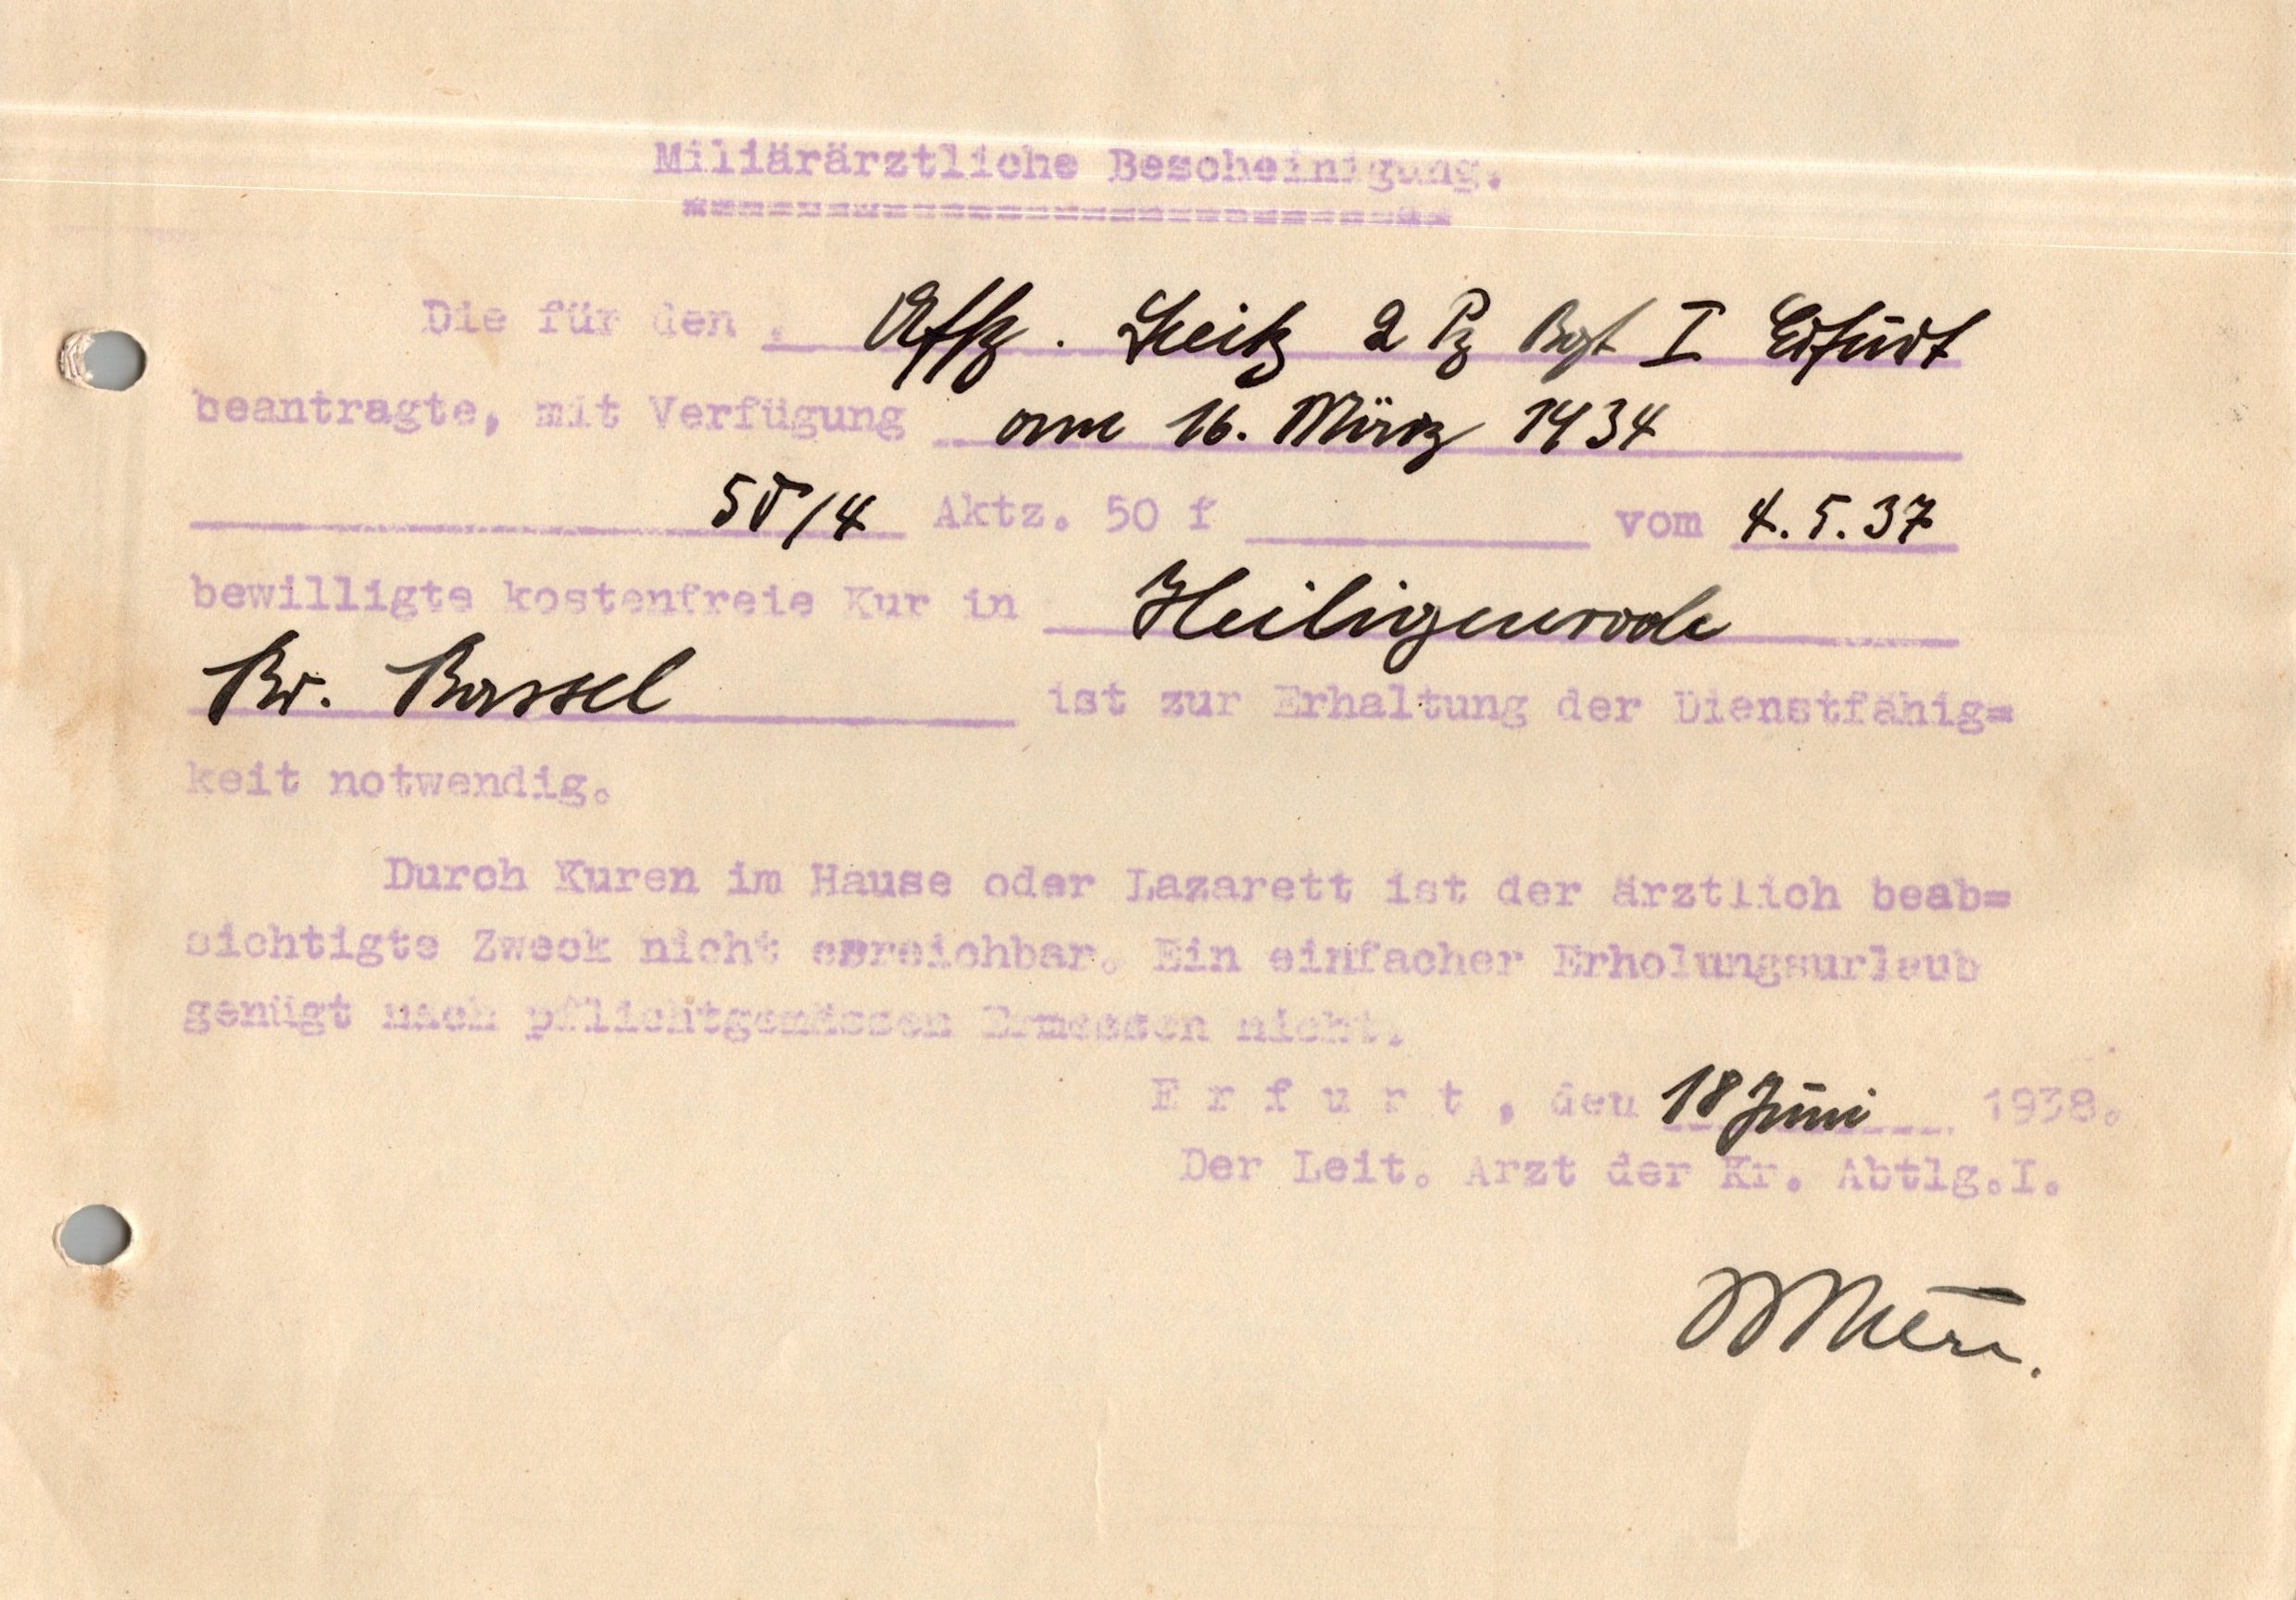 Miliärärztliche Bescheinigung.
Die für den Uffz. Seitz 2 Pz Rgt I Erfurt
beantragte, mit Verfügung am 16. März 1434
50/4 Aktz. 50 f vom 4.5.37
bewilligte kostenfreie Kur in Heiligenrode
Kr. Kassel ist zur Erhaltung der Dienstfähig=
keit notwendig.
Durch Kuren im Hause oder Lazarett ist der ärztlich beab=
sichtigte Zweck nicht erreichbar. Ein einfacher Erholungsurlaub
genügt nach pflichtgemässen Ermessen nicht.
Erfurt, den 18 Juni 1938.
Der Leit. Arzt der Kr. Abtlg.I.